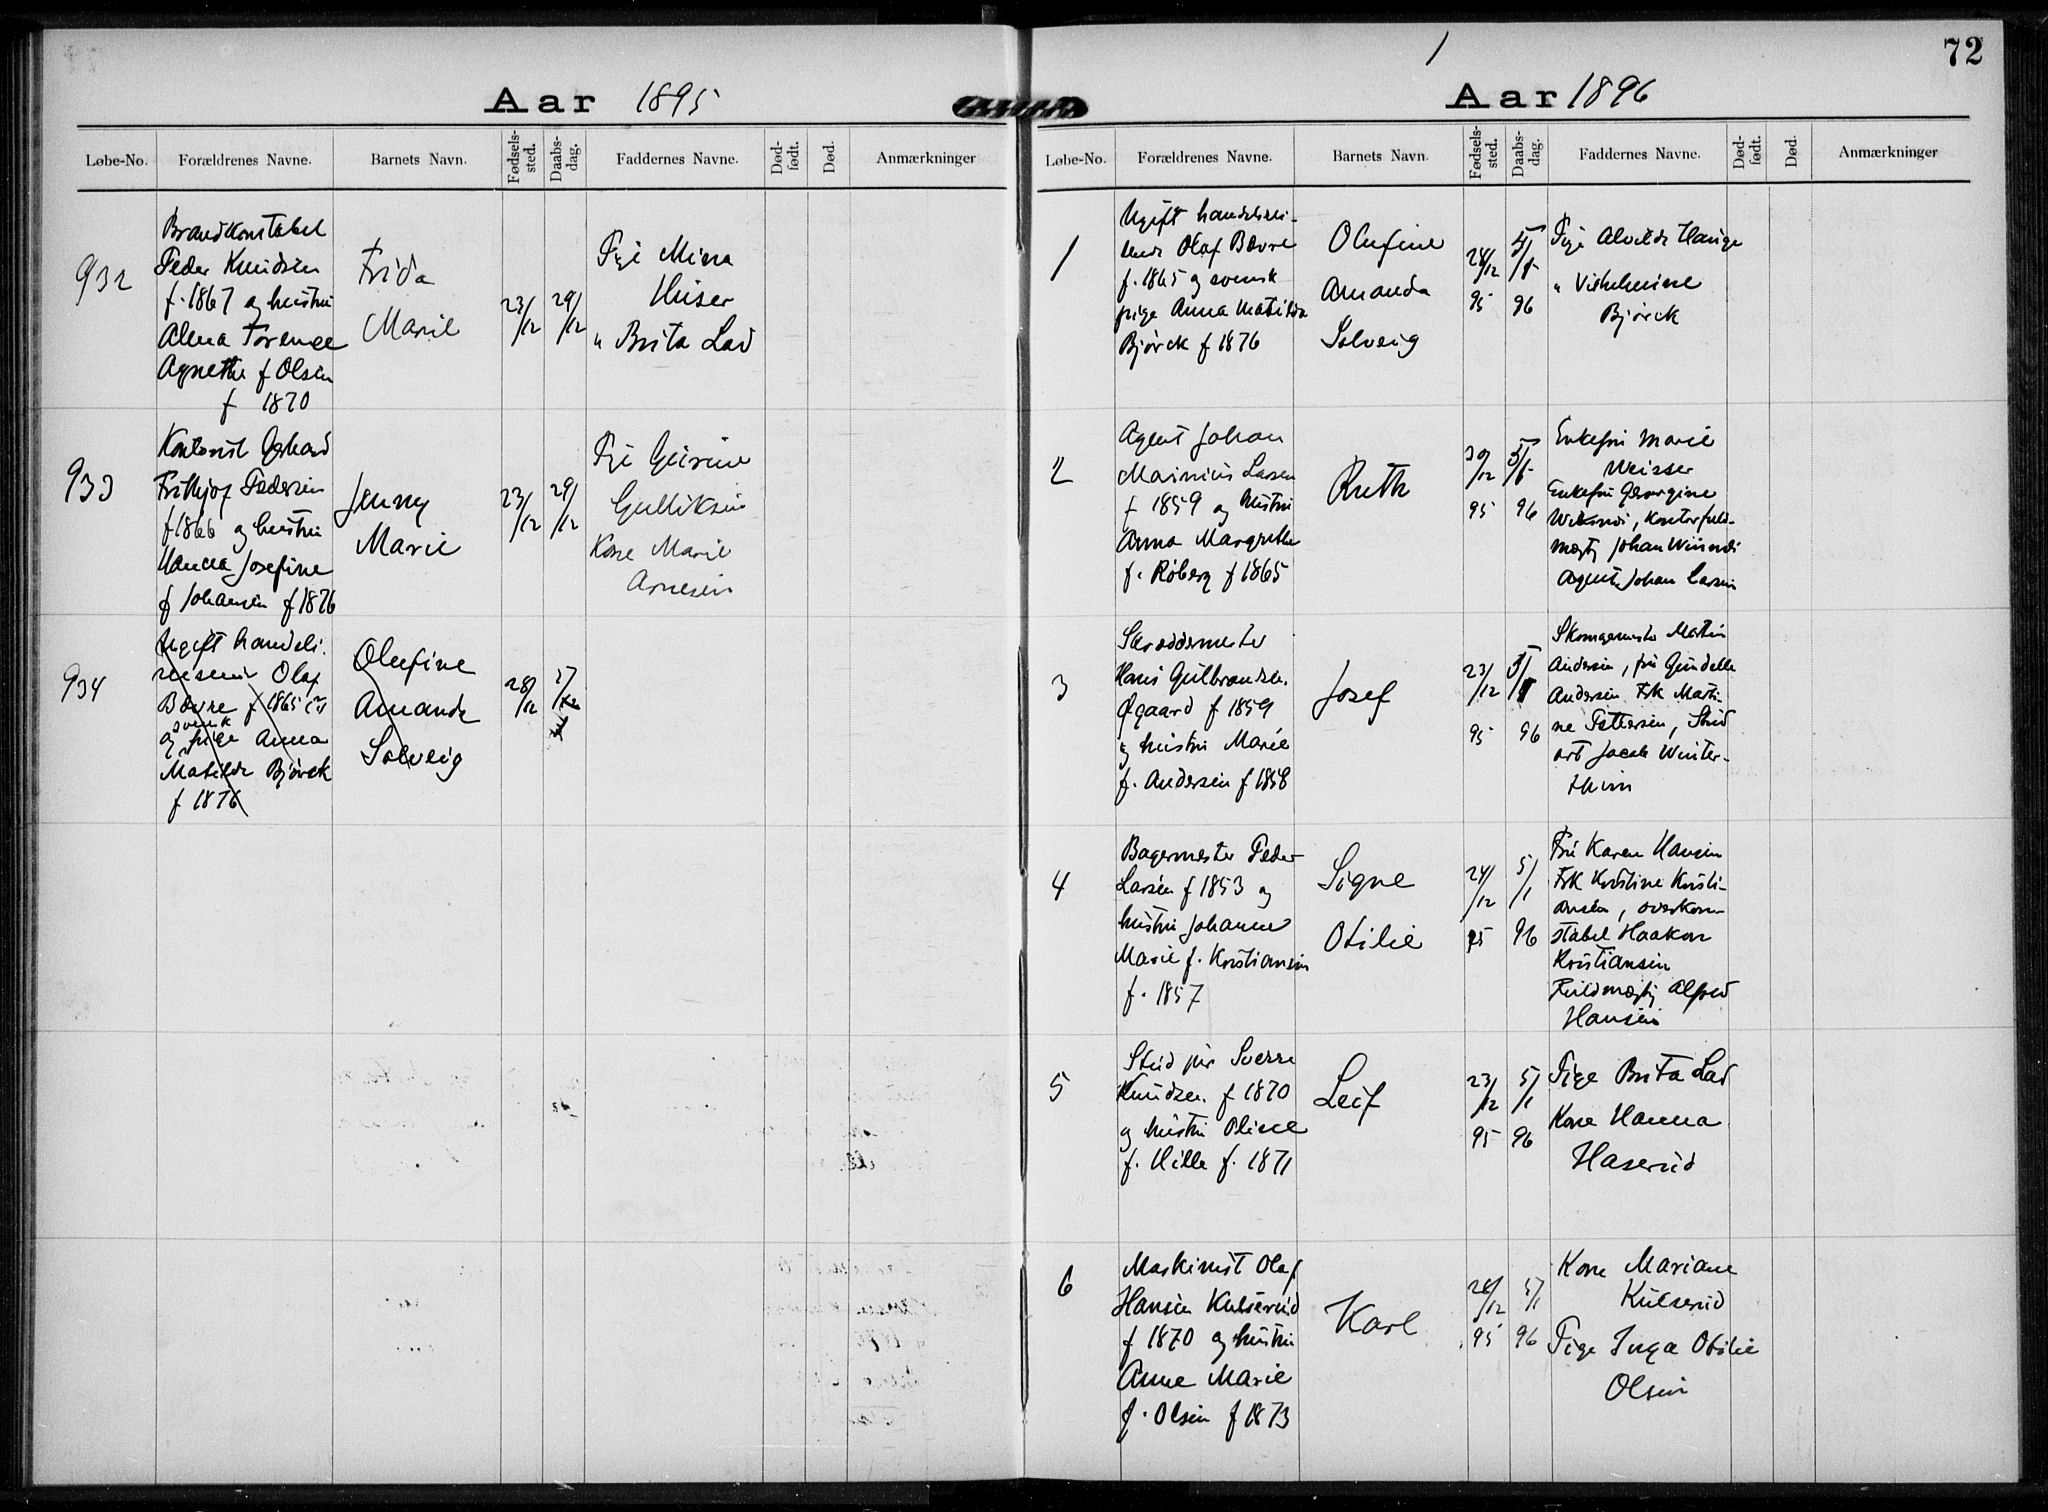 Aar 1895
Løbe-No. Forældrenes Navne. Barnets Navn. Fødsels-sted. Daabs-dag. Faddernes Navne. Død-født. Død. Anmærkninger
932
Brandkonstabel
Peder Knudsen
f. 1867 og hustru
Alma Torence
Agnethe f Olsen
f 1870
Frida
Marie
23/12
29/12
Pige Mina
Huser
" Brita Lad
933
Kontorist Gerhard
Frithjof Pedersen
f 1866 og hustru
Hanna Josefine
f Johansen f 1876
Jenny
Marie
23/12
29/12
Pige Gurine
Gulliksen
Kone Marie
Arnesen
934
Ugift handels-
reisende Olaf
Bøvre f 1865
svensk
og pige Anna
Matilde Bjørck
f 1876
Olufine
Amanda
Solveig
28/12
1
72
Aar 1896
Løbe-No. Forældrenes Navne. Barnets Navn. Fødsels-sted. Daabs-dag. Faddernes Navne. Død-født. Død. Anmærkninger
1
Ugift handelsrei-
sende Olaf Bøvre
f. 1865 og svensk
pige Anna Matilda
Bjørck f 1876
Olufine
Amanda
Solveig
28/12 95
5/1 96
Pige Alvilde Hauge
" Vilhelmine
Bjørck
2
Agent Johan
Marinius Larsen
f 1859 og hustru
Anna Margrethe
f. Röberg f 1865
Ruth
30/12 95
5/1 96
Enkefru Marie
Weisser
Enkefru Georgine
kontorfuld-
mægtig Johan
Agent Johan Larsen
3
Skræddermester
Hans Gulbrandsen
Øgaard f 1859
og hustru Marie
f. Andersen f 1858
Josef
23/12 95
5/1 96
Skomagermester Martin
Andersen, fru Gundelle
Andersen Frk Marti-
ne Pettersen, Stud
art Jacob Winter-
thun
4
Bagermester Peder
Larsen f 1853 og
hustru Johanne
Marie f. Kristiansen
f. 1857
Signe
Otilie
24/12 95
5/1 96
Fru Karen Hansen
Frk Kristine Kristi-
ansen, overkon-
stabel Haakon
Kristiansen
Fuldmægtig Alfred
Hansen
5
Stud jur Sverre
Knudzen f 1870
og hustru Oline
f. Hille f. 1871
Leif
23/12 95
5/1 96
Pige Brita Lad
Kone Hanna
Haserud
6
Maskinist Olaf
Hansen Kulserud
f 1870 og hustru
Anne Marie
f. Olsen f 1873
Karl
28/12 95
5/1 96
Kone Mariane
Kulserud
Pige Inga Otilie
Olsen